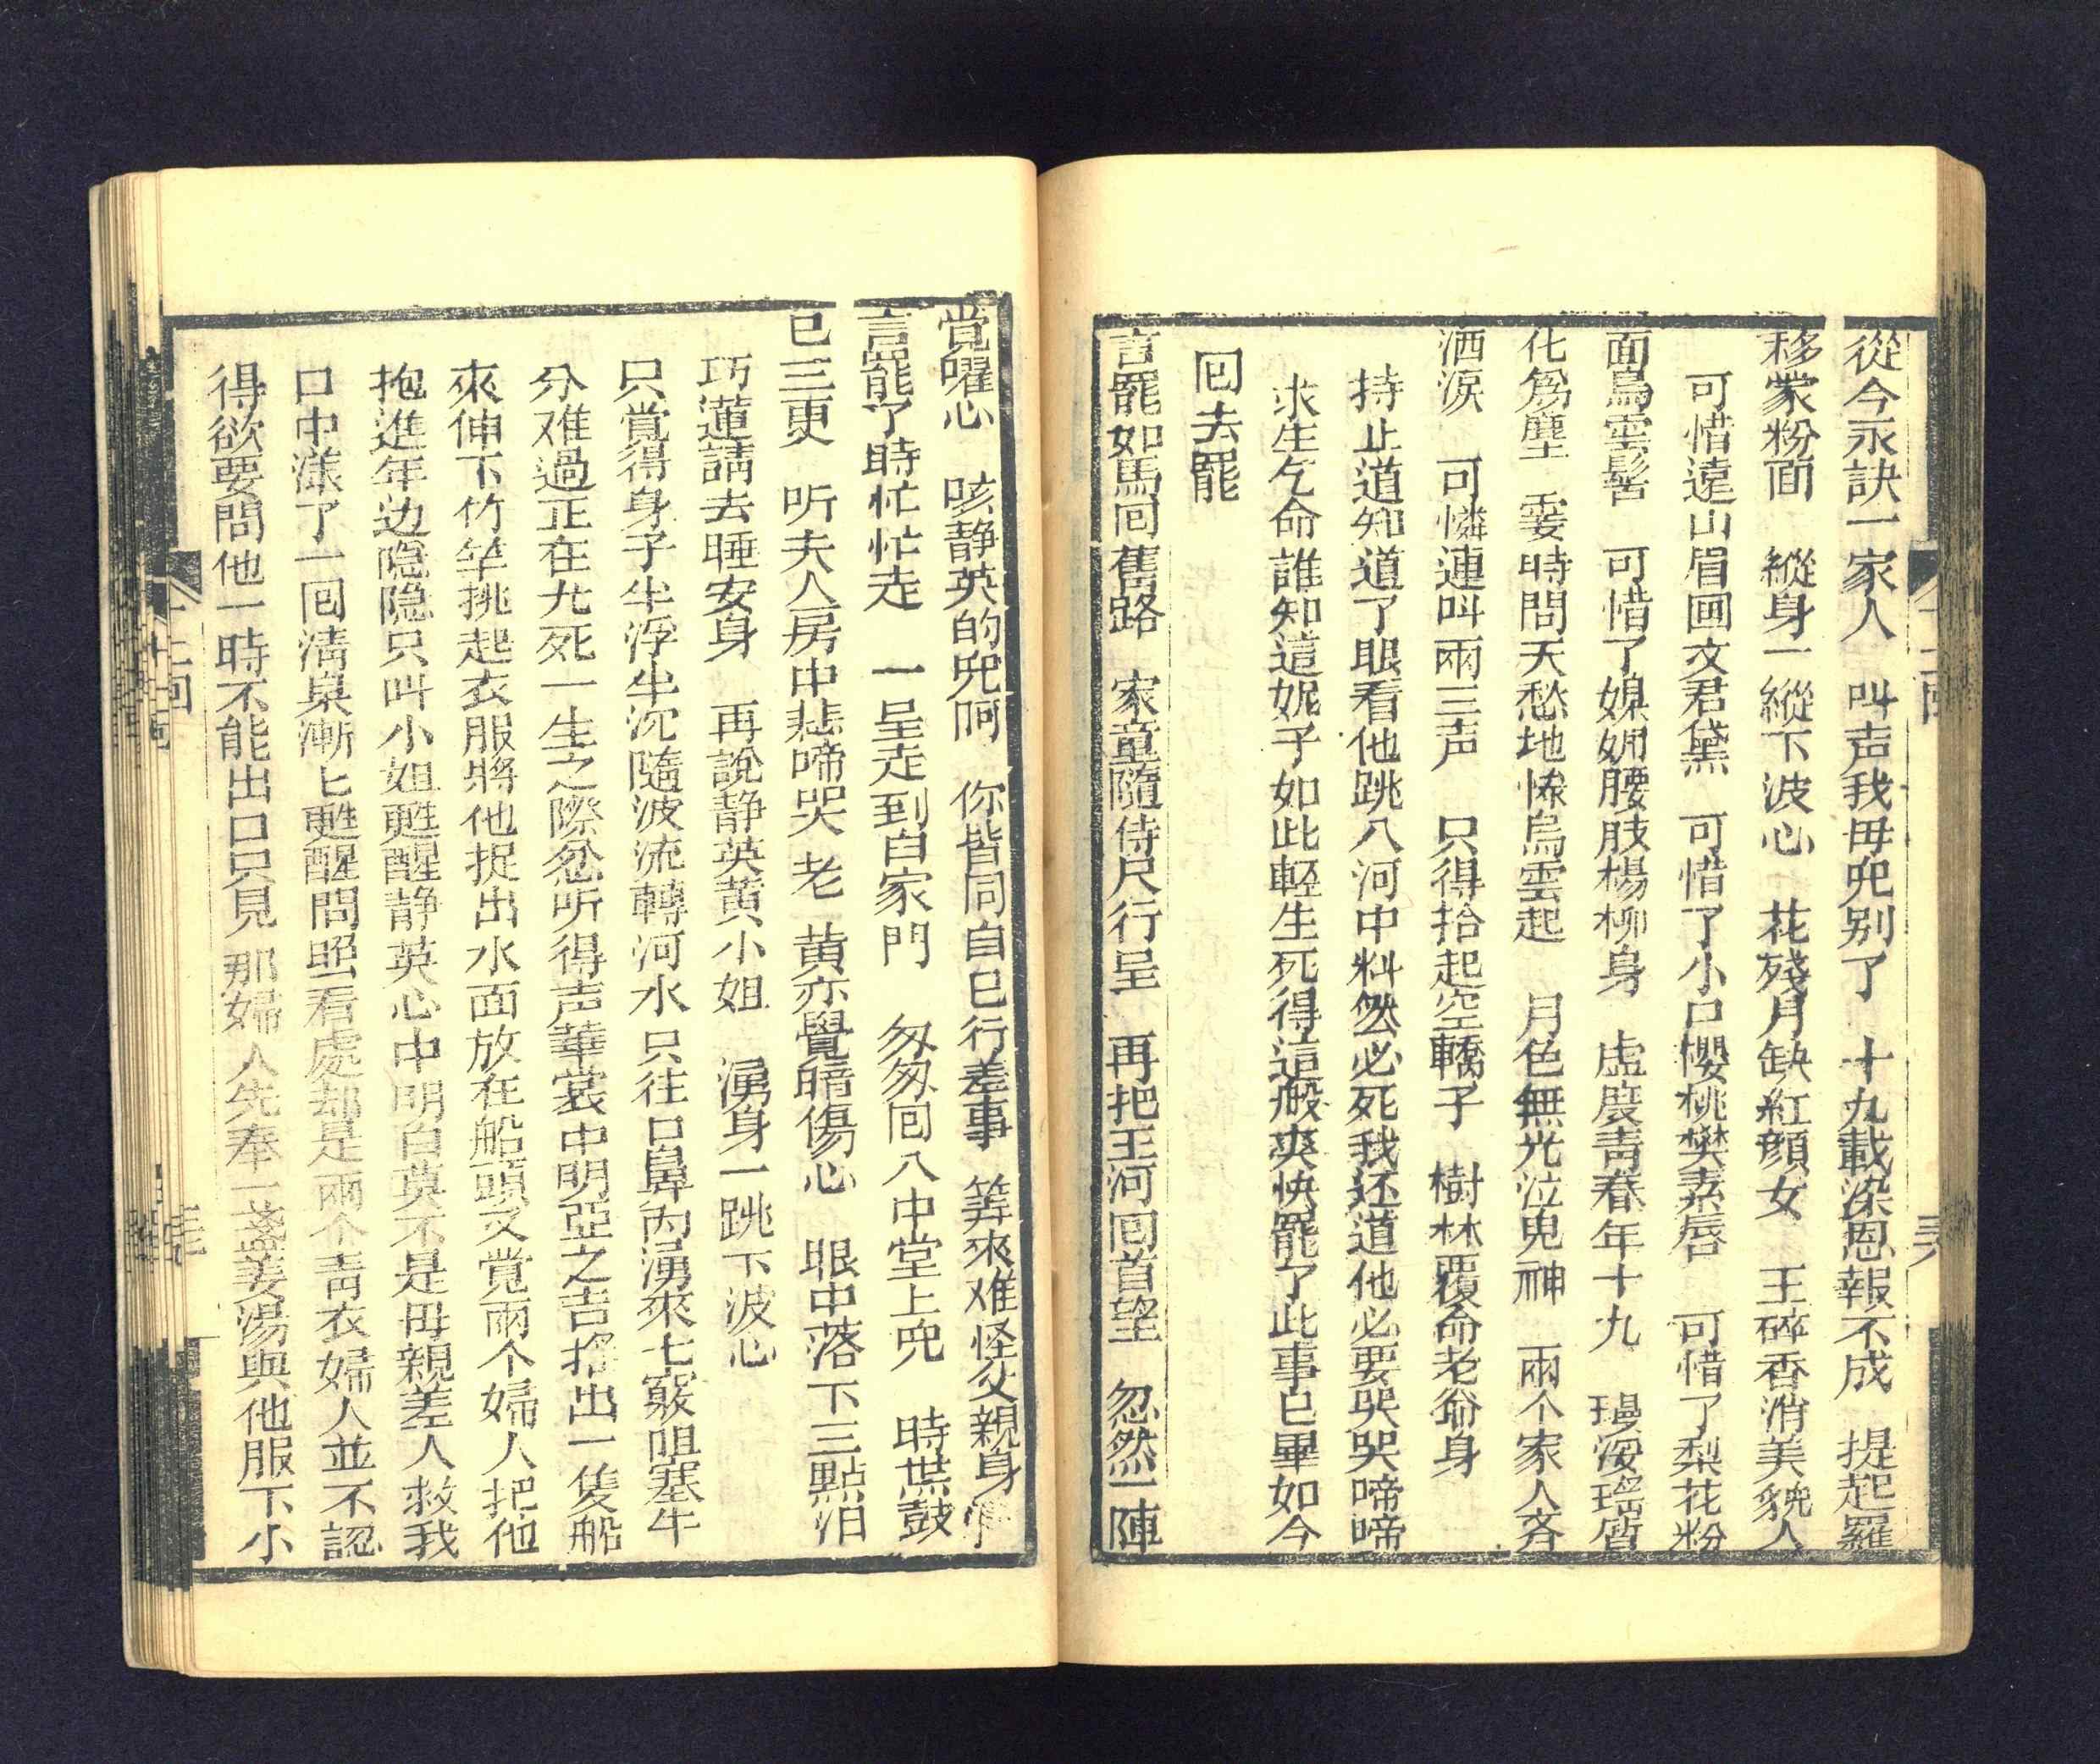 從今永訣一家人　叫声我母児别了　十九載深恩報不成　提起羅
移裳粉面　縱身一縱下波心　花殘月缺紅顔女　王碎香消美貌人
可惜遠山眉画文君黛　可惜了小口櫻桃樊素唇　可惜了梨花粉
面烏雲髻　可惜了嬝娜腰肢楊柳身　虚度青春年十九　瑶質
化爲塵　霎時間天愁地惨烏雲起　月色無光泣鬼神　兩个家人斉
洒淚　可憐連叫兩三声　只得抬起空轎子　樹林覆命老爺身
持止道知道了眼看他跳八河中料然必死我还道他必要哭哭啼啼
求生乞命誰知這妮子如此輕生死得這般爽快罷了此事已畢如今
回去罷
言罷如馬回舊路　家童隨侍尺行呈　再把王河回首望　忽然一陣
覚囉心　咳静英的児呵　你皆同自已行差事　筭來难怪父親身
言罷了時忙忙走　一呈走到自家門　匆匆回八中堂上児　時𫝆鼓
已三更　听夫人房中悲啼哭　老黄亦覺暗傷心　眼中落下三點泪
巧蓮請去睡安身　再說静英黄小姐　湧身一跳下波心
只覚得身子半浮半沉隨波流轉河水只往口鼻内湧來七竅咀塞牛
分难過正在九死一生之際忽听得声華裳中明亞之吉摇出一隻船
來伸下竹竿挑起衣服將他捉出水面放在船頭又覚兩个婦人把他
抱進年边隐隐只叫小姐甦醒静英心中明白莫不是母親差人救我
口中漾了一回淸臬漸匕甦醒問照看處却是兩个青衣婦人並不認
得欲要問他一時不能出口只見那婦人先奉一盞姜湯與他服下小